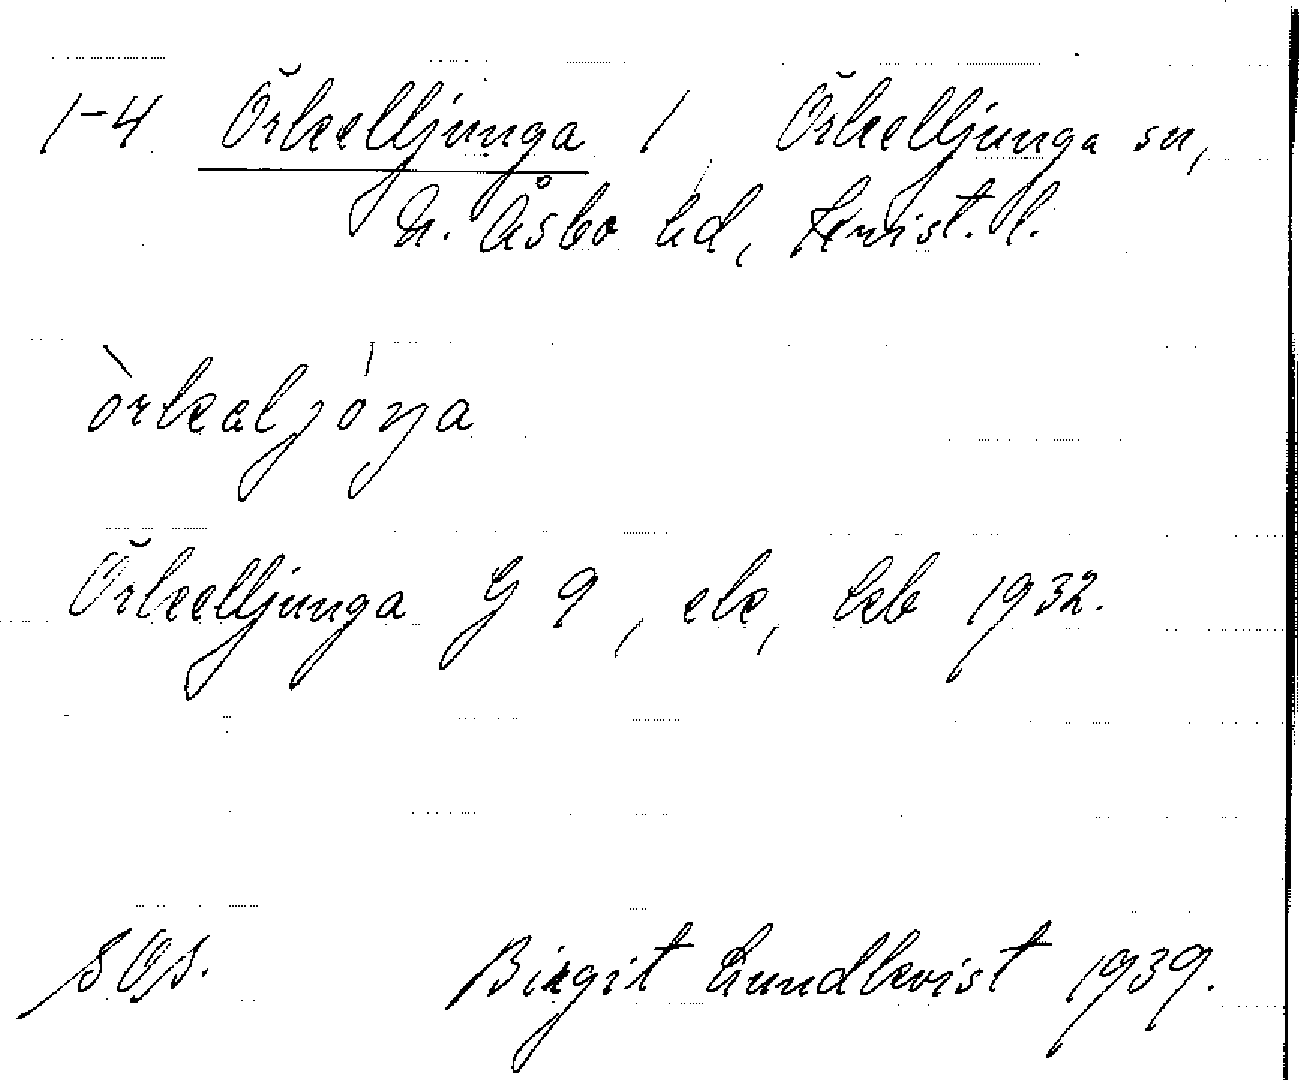 1-4 Örkelljunga 1 Örkelljunga sn,
N. Åsbo hd, Krist. l.
òrkaljóŋa
Örkelljunga G 9, ek, kb 1932.
SOS. Birgit Lundkvist 1939.